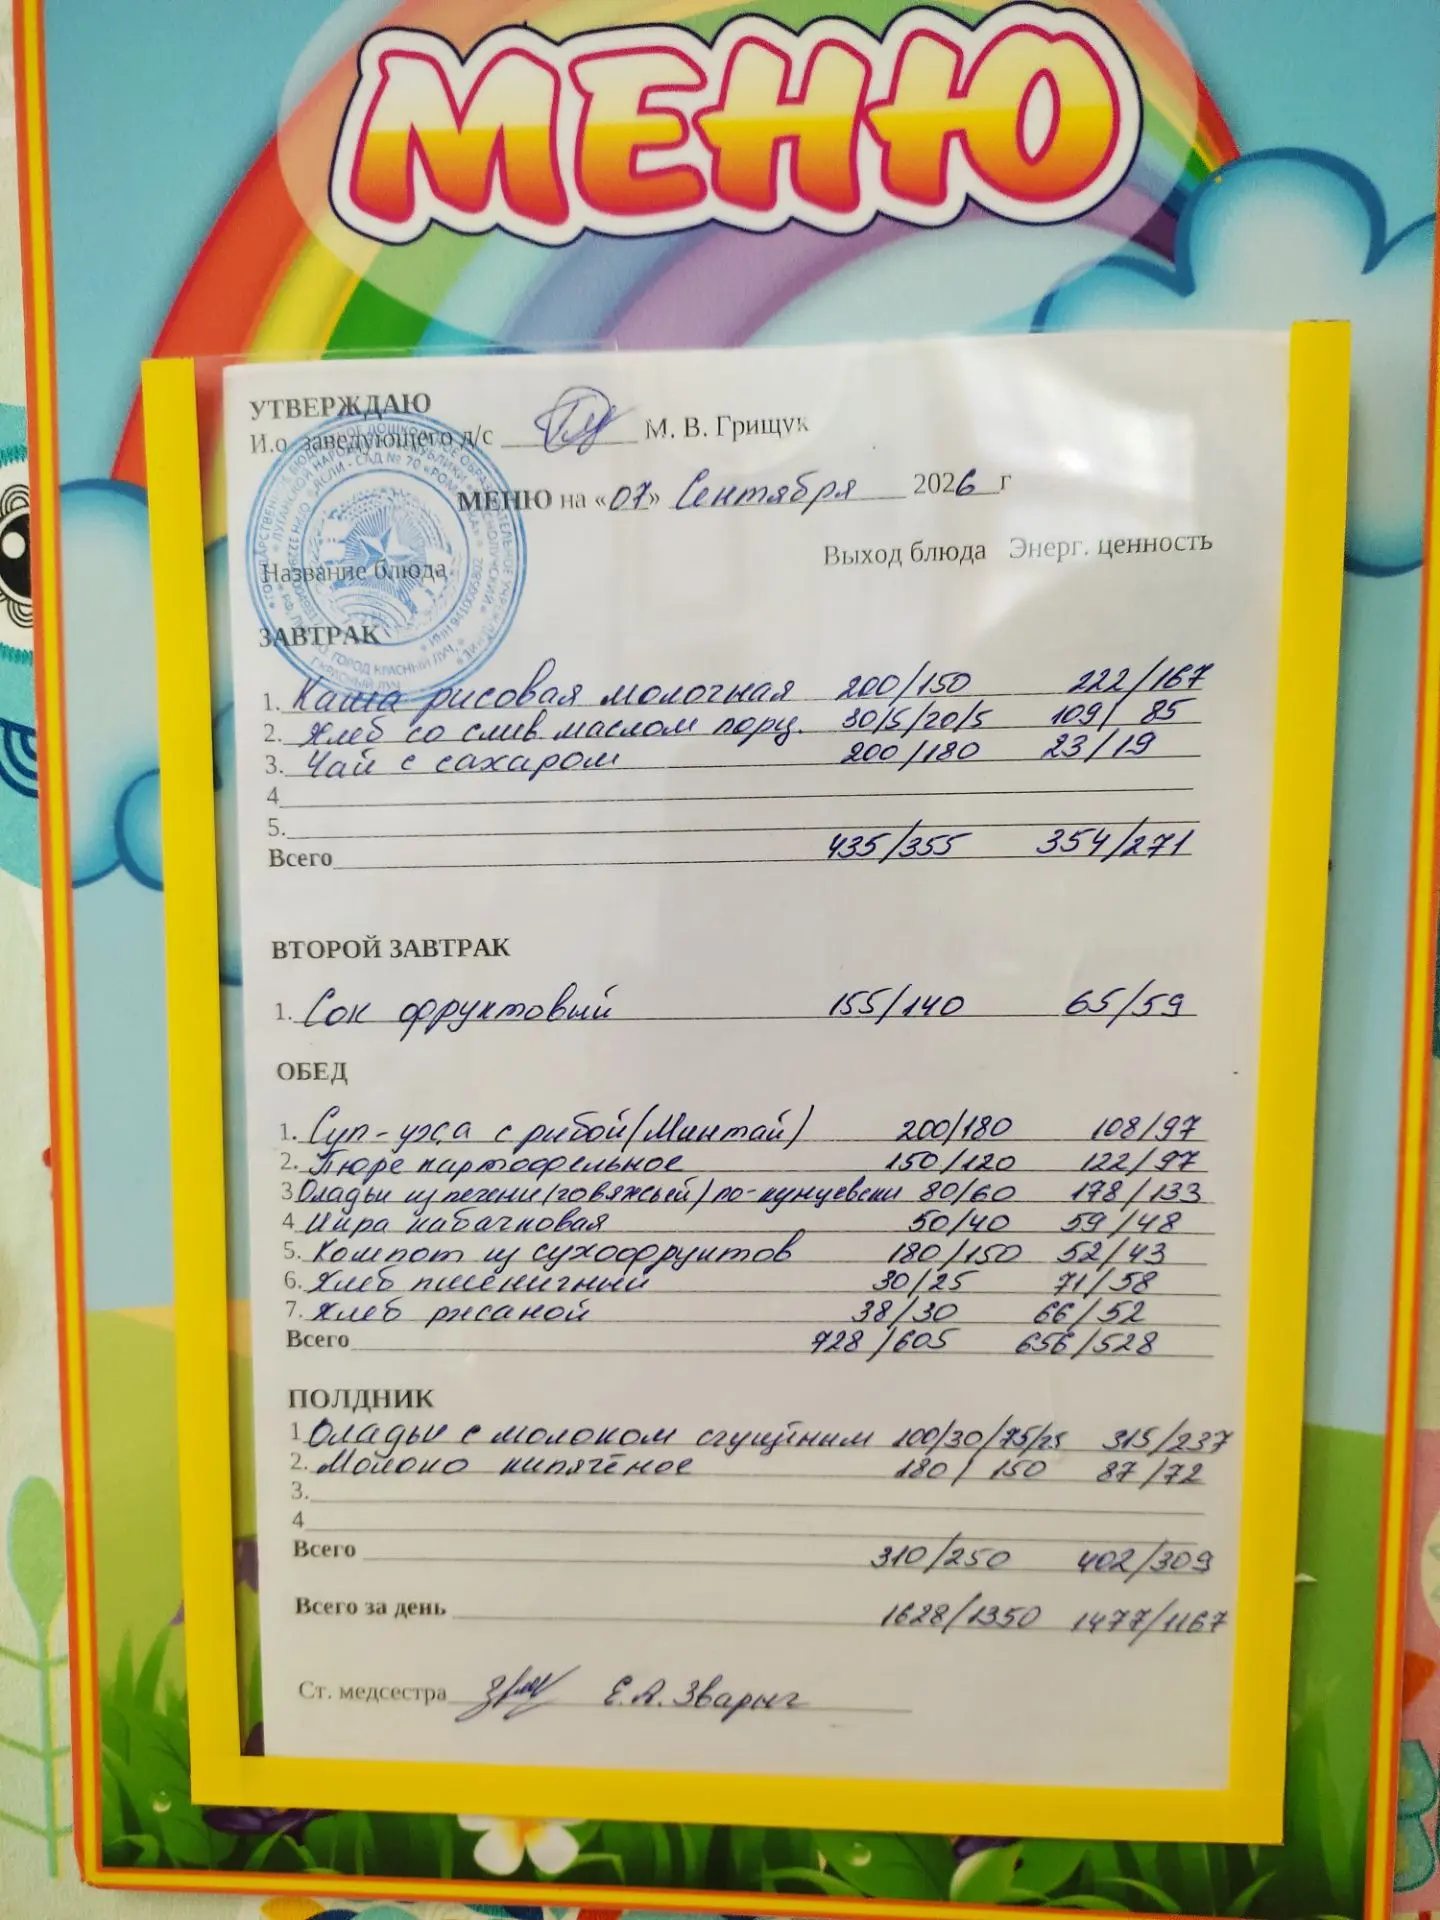 МЕНЮ
УТВЕРЖДАЮ
И.о. заведующего д/с М. В. Грищук
МЕНЮ на «07» Сентября 2026 г
Выход блюда Энерг. ценность
Название блюда
ЗАВТРАК
1. Каша рисовая молочная 200/150 222/167
2. Хлеб со слив. маслом порц. 30/5/20/5 109/ 85
3. Чай с сахаром 200/180 23/19
4
5.
Всего 435/355 354/271
ВТОРОЙ ЗАВТРАК
1. Сок фруктовый 155/140 65/59
ОБЕД
1. Суп-уха с рыбой (Минтай) 200/180 108/97
2. Пюре картофельное 150/120 122/97
3 Оладьи из печени (говяжьей) по-кунцевски 80/60 178/133
4 Икра кабачковая 50/40 59/48
5. Компот из сухофруктов 180/150 52/43
6. Хлеб пшеничный 30/25 71/58
7. Хлеб ржаной 38/30 66/52
Всего 728/605 656/528
ПОЛДНИК
1 Оладьи с молоком сгущёным 100/30/75/25 315/237
2. Молоко кипячёное 180/ 150 87/72
3.
4
Всего 310/250 402/309
Всего за день 1628/1350 1477/1167
Ст. медсестра Е.А. Зварыг